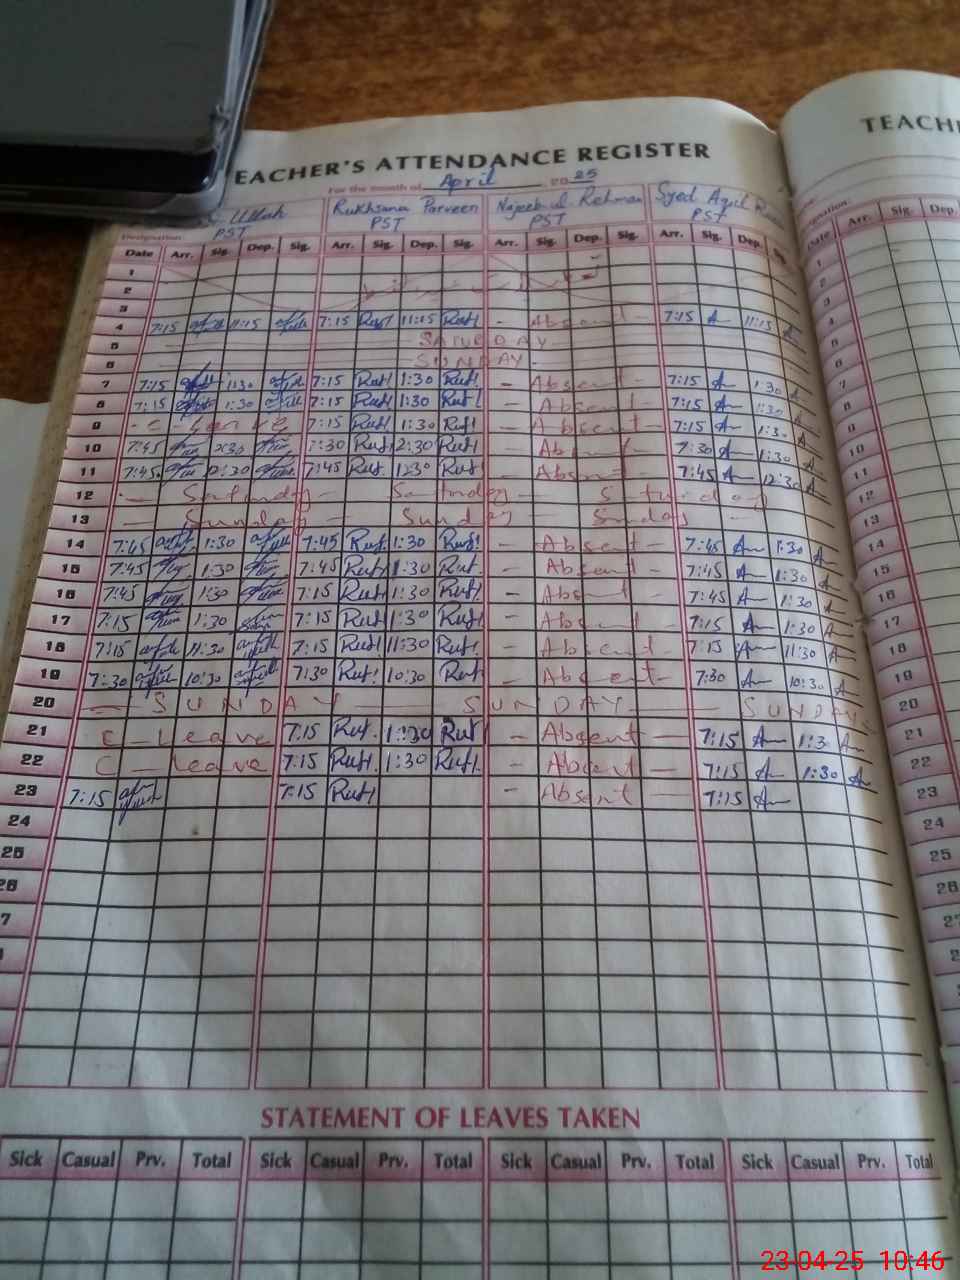 TEACH
EACHER'S ATTENDANCE REGISTER
For the month of April 2025
Ullah Rukhsana Parveen Najeeb ul Rehman Syed
PST PST PST PST
Designation
Date Arr. Sig. Dep. Sig. Arr. Sig. Dep. Sig. Arr. Sig. Dep. Sig. Arr. Sig. Dep. Date Arr. Sig. Dep.
1 1
2 2
3 3
4 7:15 11:15 7:15 11:15 - Absent - 7:15 11:15 4
5 SATURDAY 5
6 SUNDAY 6
7 7:15 1:30 7:15 1:30 - Absent - 7:15 1:30 7
8 7:15 1:30 7:15 1:30 - Absent - 7:15 1:30 8
9 - C - Leave 7:15 1:30 - Absent - 7:15 1:3 9
10 7:45 7:30 2:30 - Absent - 7:30 1:30 10
11 7:45 12:30 7:45 12:30 - Absent - 7:45 12:30 11
12 - Saturday - Saturday - Saturday 12
13 - Sunday - Sunday - Sunday - 13
14 7:45 1:30 7:45 1:30 - Absent - 7:45 1:30 14
15 7:45 1:30 7:45 1:30 - Absent - 7:45 1:30 15
16 7:45 1:30 7:15 1:30 - Absent - 7:45 1:30 16
17 7:15 1:30 7:15 1:30 - Absent - 7:15 1:30 17
18 7:15 11:30 7:15 11:30 - Absent - 7:15 11:30 18
19 7:30 10:30 7:30 10:30 - Absent - 7:30 10:30 19
20 - SUNDAY - SUNDAY - SUNDAY 20
21 C - Leave 7:15 1:30 - Absent - 7:15 1:3 21
22 C - Leave 7:15 1:30 - Absent - 7:15 1:30 22
23 7:15 7:15 - Absent - 7:15 23
24 24
25 25
26 26
7
STATEMENT OF LEAVES TAKEN
Sick Casual Prv. Total Sick Casual Prv. Total Sick Casual Prv. Total Sick Casual Prv. Total
23-04-25 10:46